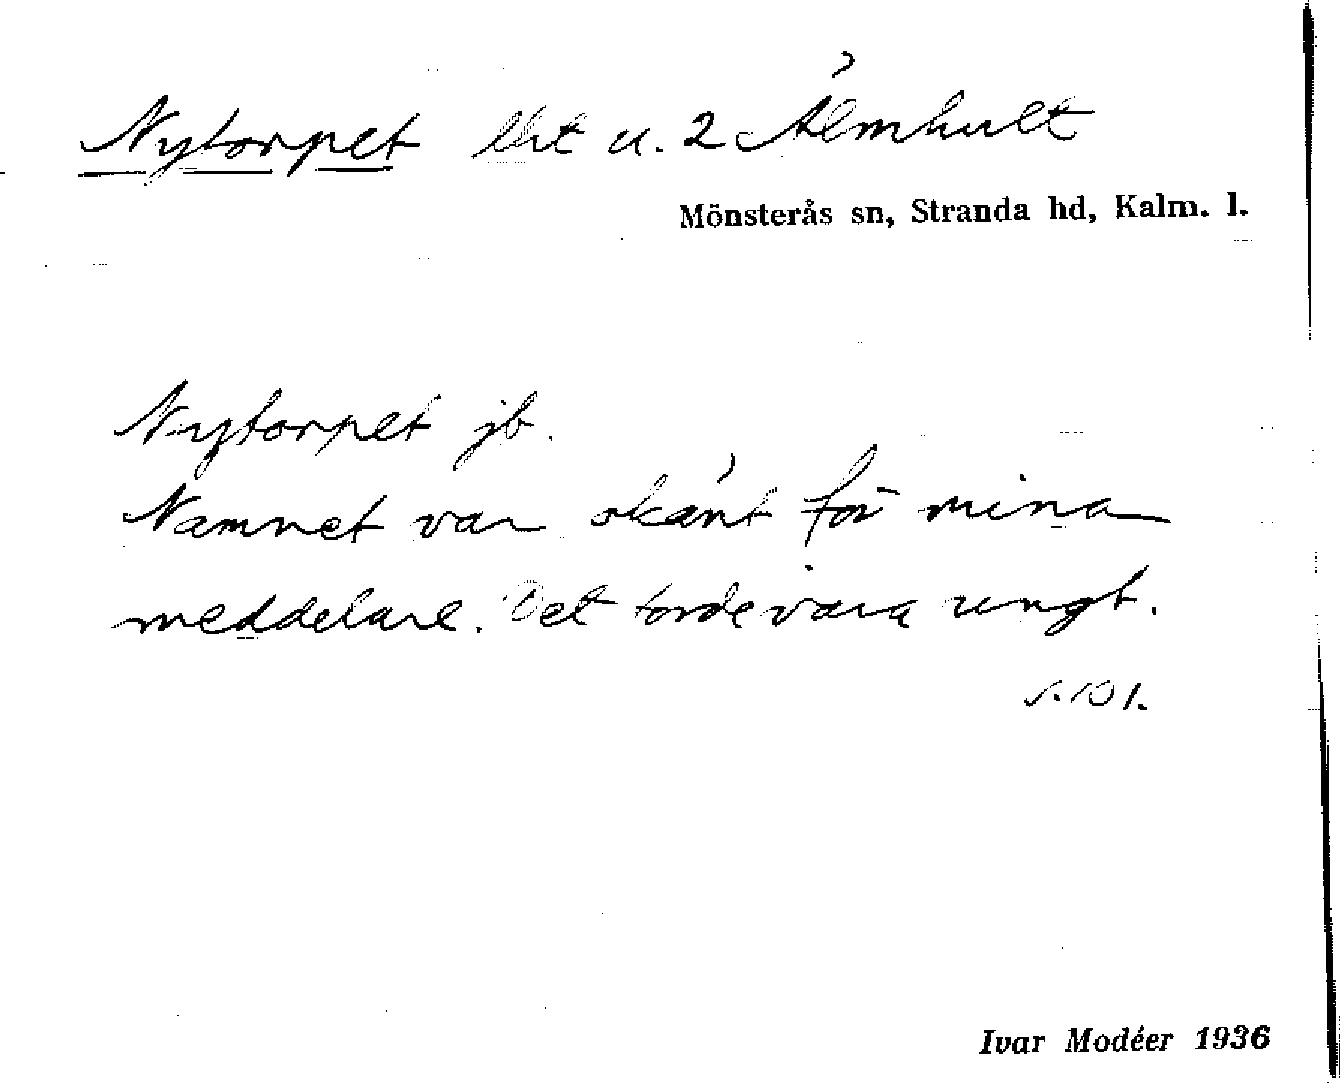 Nytorpet lht u. 2 Ålmhult
Mönsterås sn, Stranda hd, Kalm. l.
Nytorpet jb.
Namnet var okänt för mina
meddelare. Det torde vara ungt.
s. 101.
Ivar Modéer 1936